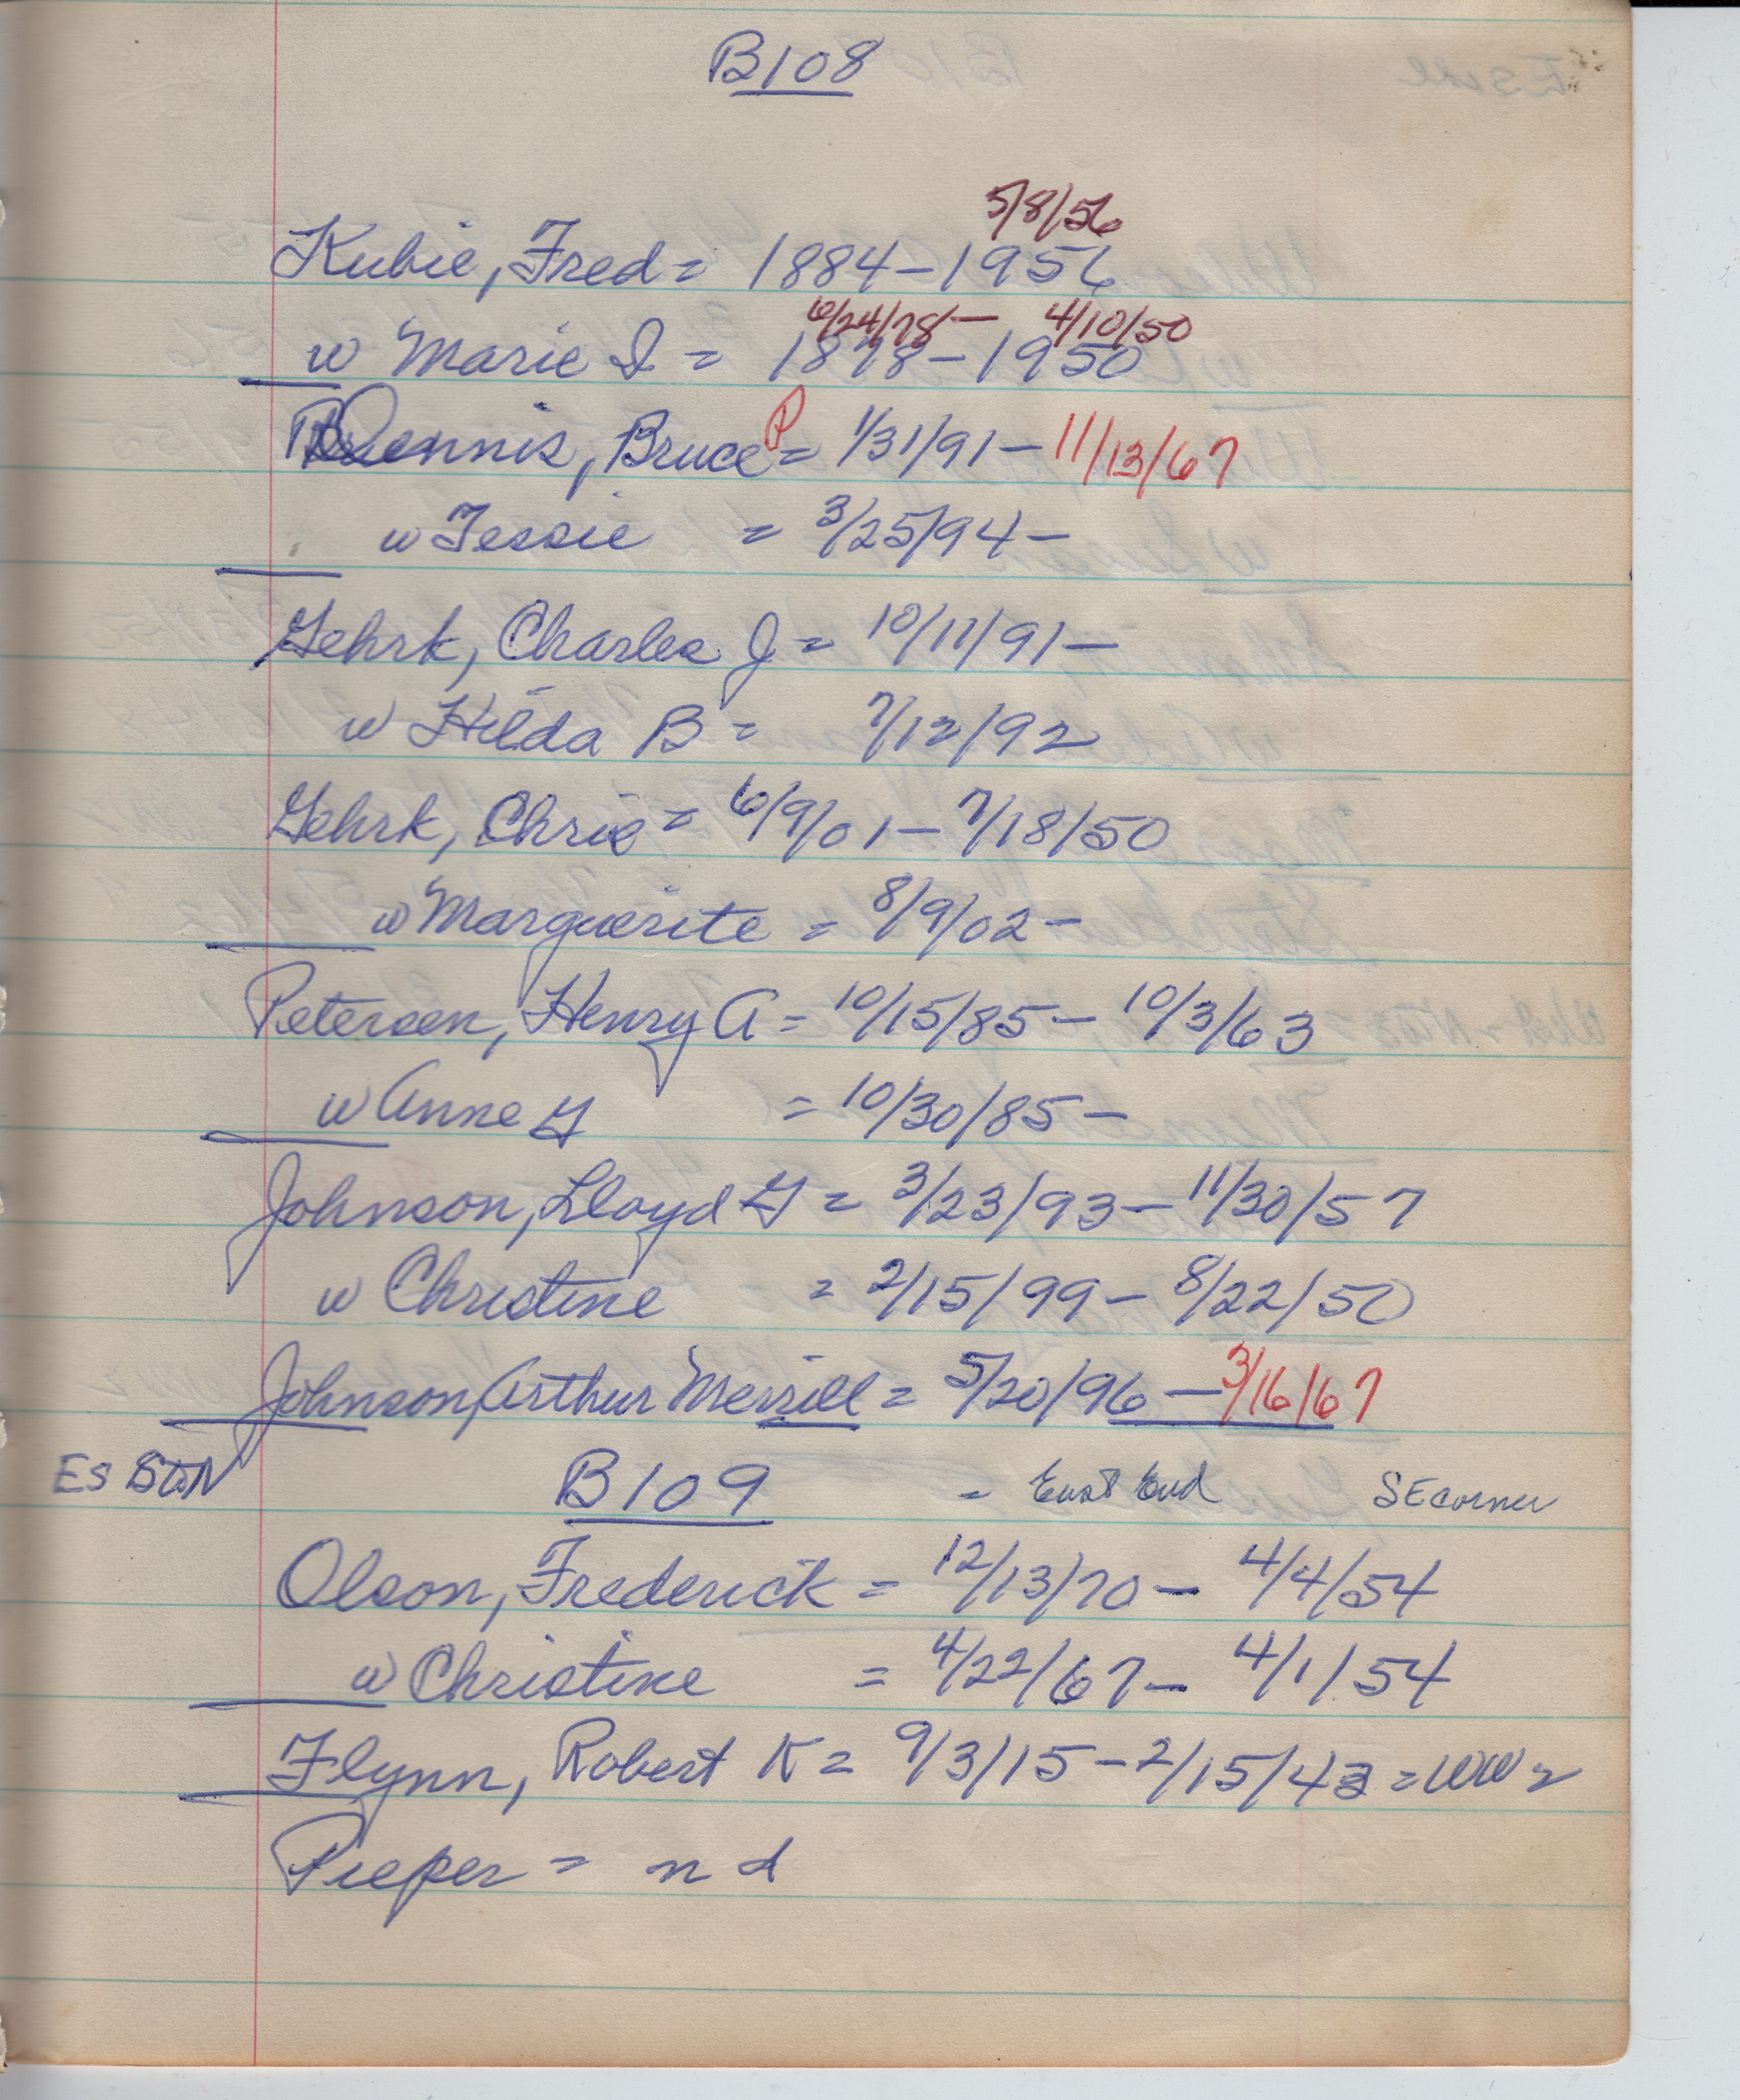 B108
5/8/56
Kubie, Fred = 1884 - 1956
6/24/78 - 4/10/50
w Marie I = 1878 - 1950
Dennis, Bruce P = 1/31/91 - 11/13/67
w Tessie = 3/25/94 -
Gehrk, Charles J = 10/11/91 -
w Hilda B = 7/12/92
Gehrk, Chris = 6/9/01 - 7/18/50
w Marguerite = 8/9/02 -
Petersen, Henry A = 10/15/85 - 10/3/63
w Anne G = 10/30/85 -
Johnson, Lloyd G = 3/23/93 - 11/30/57
w Christine = 2/15/99 - 8/22/50
Johnson, Arthur Merrill = 5/20/96 - 3/16/67
ES B109 = East End SE corner
Olson, Frederick = 12/13/70 - 4/4/54
w Christine = 4/22/67 - 4/1/54
Flynn, Robert K = 9/3/15 - 2/15/43 = WW2
Pieper = n d